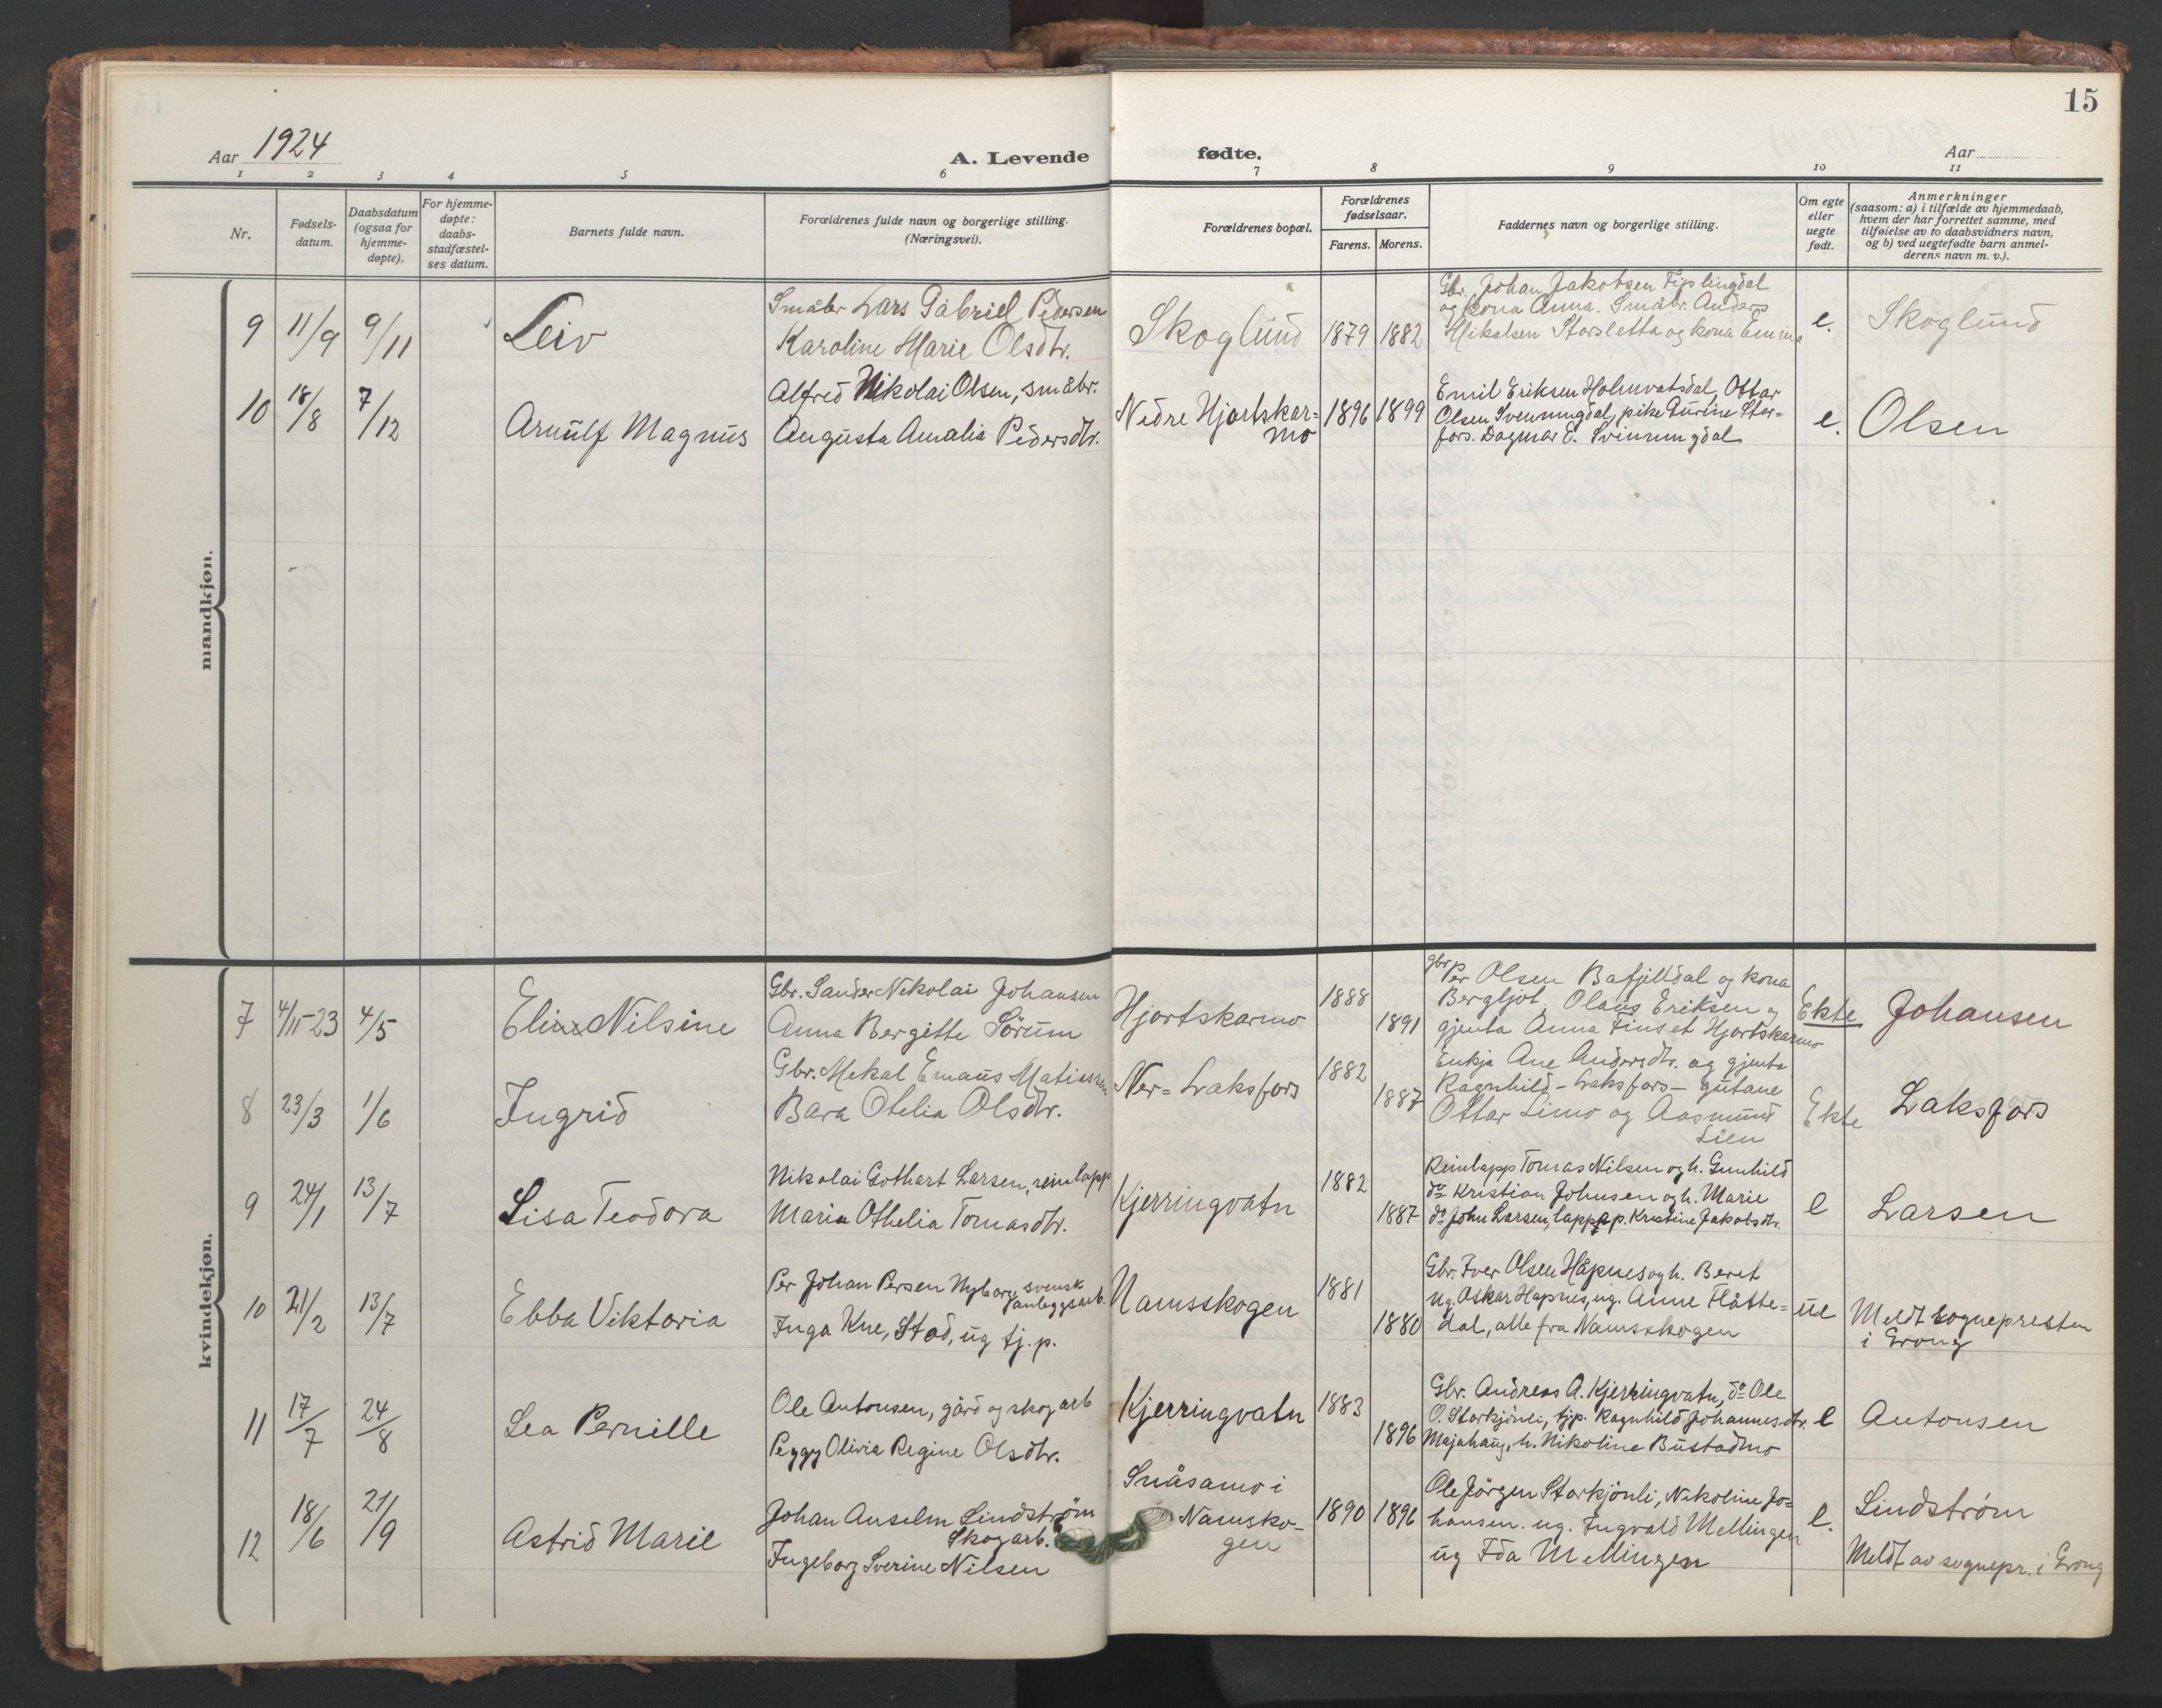 15
Aar 1924
A. Levende fødte.
Aar
1 2 3 4 5 6 7 8 9 10 11
Nr.
Fødsels-
datum.
Daabsdatum
(ogsaa for
hjemme-
døpte).
For hjemme-
døpte:
daabs-
stadfæstel-
ses datum.
Barnets fulde navn.
Forældrenes fulde navn og borgerlige stilling.
(Næringsvei).
Forældrenes bopæl.
Forældrenes
fødselsaar.
Farens. Morens.
Faddernes navn og borgerlige stilling.
Om egte
eller
uegte
født.
Anmerkninger
(saasom: a) i tilfælde av hjemmedaab,
hvem der har forrettet samme, med
tilføielse av to daabsvidners navn,
og b) ved uegtefødte barn anmel-
derens navn m. v.).
mandkjøn.
9 11/9 9/11
Leiv
Småbr Lars Gabriel Pedersen
Karoline Marie Olsdtr.
Skoglund
1879 1882
Gbr. Johan Jakobsen Fiplingdal
og kona Anna. Småbr. Anders
Mikalsen Storsletta og kona Emma
e.
Skoglund
10 18/8 7/12
Arnulf Magnus
Alfred Nikolai Olsen, småbr.
Augusta Amalia Pedersdtr.
Nedre Hjortskar=
mo
1896 1899
Emil Eriksen Holmvatsdal, Ottar
Olsen Svenningdal, pike Turine Stor-
fors. Dagmar E. Svenningdal
e.
Olsen
kvindekjøn.
7 4/11-23 4/5
Eli Nilsine
Gbr. Sander Nikolai Johansen
Anna Bergitte Sörum
Hjortskarmo
1888
1891
gbr Per Olsen Bafjelldal og kona
Bergljot. Olaus Eriksen og
gjenta Anna Finset Hjortskarmo
Ekte
Johansen
8 23/3 1/6
Ingrid
Gbr. Mekal Emaus Matiassen
Bara Otelia Olsdtr.
Ner=Laksfors
1882
1887
Enkja Ane Andersdtr. og gjenta
Ragnhild - Laksfors - gutane
Ottar Limo og Aasmund
Lien
Ekte
Laksfors
9 24/1 13/7
Lisa Teodora
Nikolai Gothart Larsen, reinlapp
Maria Othelia Tomasdtr.
Kjerringvatn
1882
1887
Reinlapp Tomas Nilsen og h. Gunhild
do Kristian Johnsen og h. Marie
do John Larsen, lappp. Kristine Jakobsdtr.
e
Larsen
10 21/2 13/7
Ebba Viktoria
Per Johan Persen Nyborg svensk
anleggsarb.
Inga Kne, Stod, ug tj. p.
Namsskogen
1881
1880
Gbr. Iver Olsen Håpnes og h. Beret
Ug. Oskar Hapnes, ug. Anne Flåtte=
dal, alle fra Namsskogen
ue
Meldt sognepresten
i Grong
11 17/7 24/8
Lea Pernille
Ole Antonsen, gård og skogarb
Peggy Olivia Regine Olsdtr.
Kjerringvatn
1883
1896
Gbr. Andreas A. Kjerringvatn, do Ole
O. Storkjönli, tjp. Ragnhild Johannesdtr.
Majahaug, h. Nikoline Bustadmo
e
Antonsen
12 18/6 21/9
Astrid Marie
Johan Anselm Lindström
Skogarb.
Ingeborg Sverine Nilsen
Snåsamo i
Namsko-
gen
1890 1896
Ole Jörgen Storkjönli, Nikoline Jo=
hansen. ug. Ingvald Mellingen
ug Ida Mellingen
e.
Lindström
Meldt av sognepr. i Grong